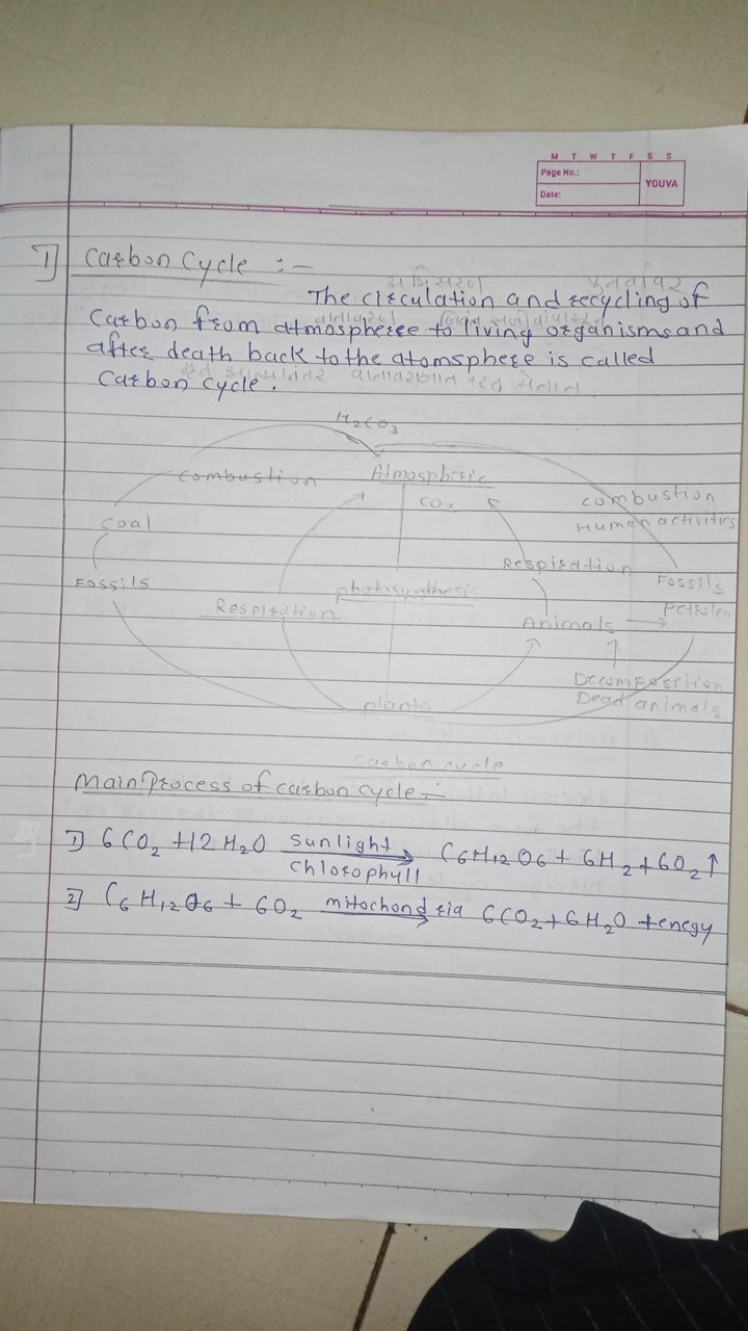 M T W T F S S
Page No.:
YOUVA
Date:
1] Carbon Cycle :-
अभिसरण
The circulation and recycling of
वातावरण
Carbon from atmospheree to living organisms and
after death back to the atomsphere is called
नंतर वातावरणात परत येतात
Carbon cycle.
H2CO3
Combustion
Atmospheric
CO2
Combustion
Human activities
Coal
Respiration
Fossils
Fossils
photosynthesis
Respiration
Animals
Decomposition
Dead animals
plants
Carbon cycle
Main Process of carbon cycle :-
1] 6CO2 + 12 H2O Sunlight C6H12O6 + 6H2 + 6O2 ↑
Chlorophyll
2] C6H12O6 + 6O2 mitochondria 6CO2 + 6H2O + enegy